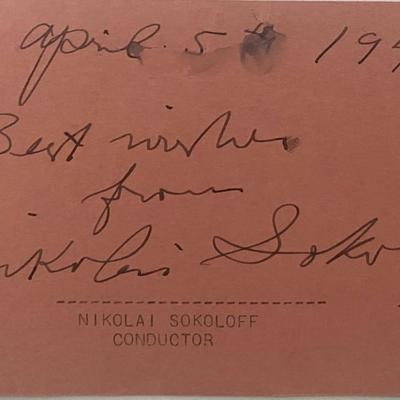 April 5th 194
Best wishes
from
Nikolai Soko
NIKOLAI SOKOLOFF
CONDUCTOR